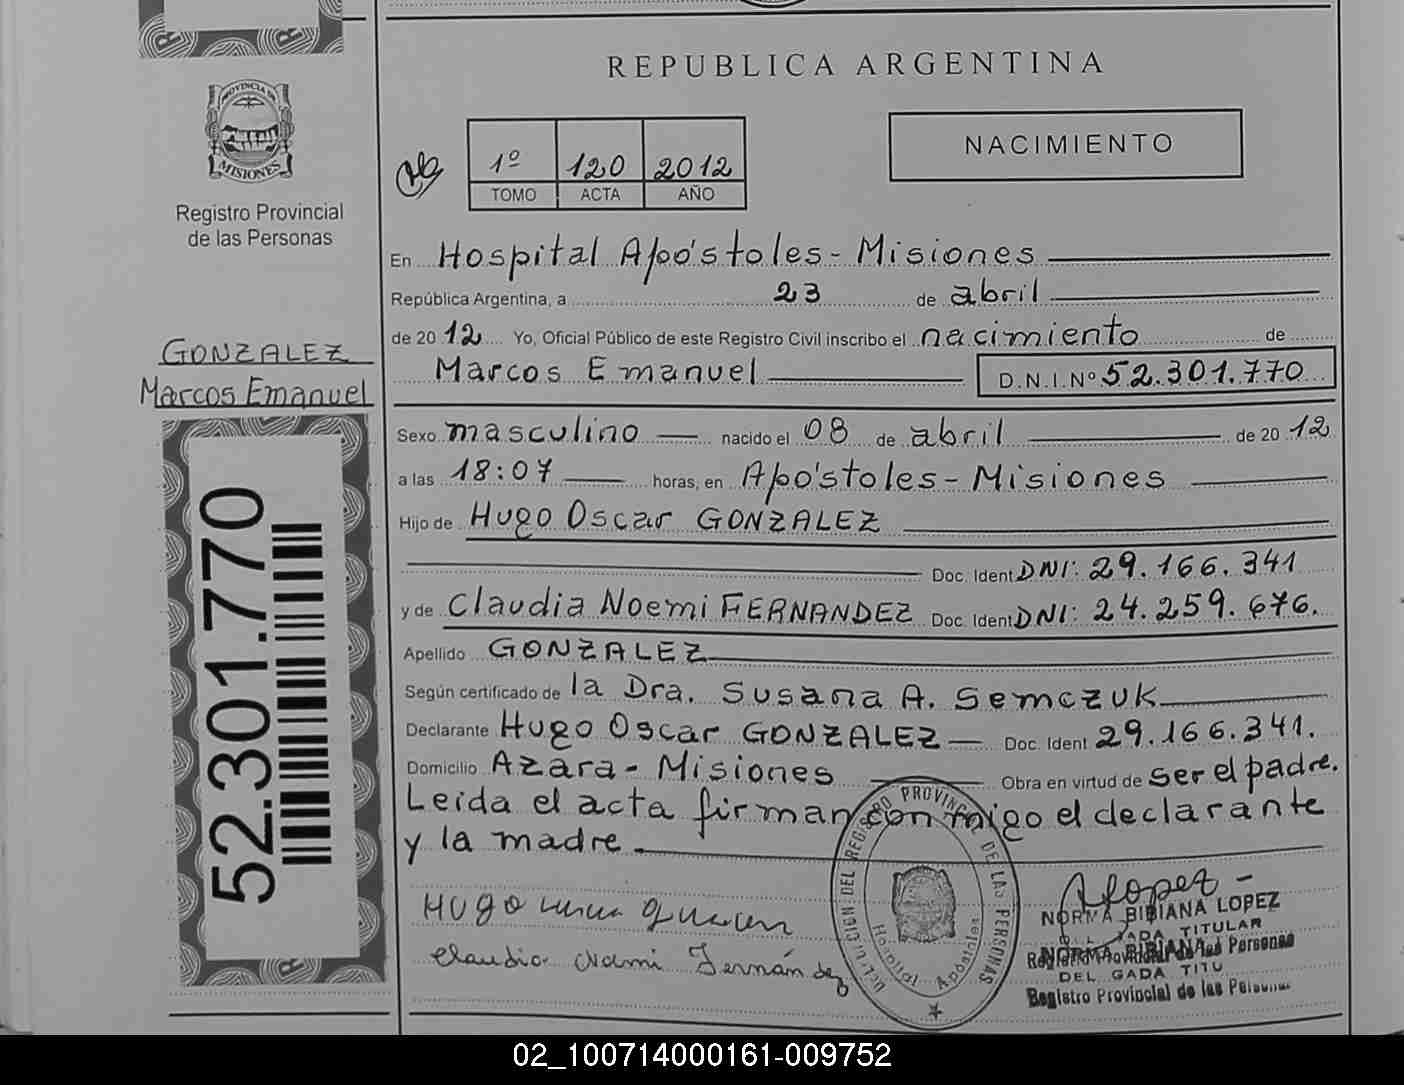 REPUBLICA ARGENTINA
PROVINCIA DE
MISIONES
Registro Provincial
de las Personas
1º 120 2012
TOMO ACTA AÑO
NACIMIENTO
En Hospital Apóstoles - Misiones
República Argentina, a 23 de abril
de 2012 Yo, Oficial Público de este Registro Civil inscribo el nacimiento de
Marcos Emanuel D.N.I.Nº 52.301.770
GONZALEZ
Marcos Emanuel
52.301.770
Sexo masculino nacido el 08 de abril de 2012
a las 18:07 horas, en Apóstoles - Misiones
Hijo de Hugo Oscar GONZALEZ
Doc. Ident DNI: 29.166.341
y de Claudia Noemi FERNANDEZ Doc. Ident DNI: 24.259.676.
Apellido GONZALEZ
Según certificado de la Dra. Susana A. Semczuk
Declarante Hugo Oscar GONZALEZ Doc. Ident 29.166.341.
Domicilio Azara - Misiones Obra en virtud de ser el padre.
Leída el acta firman conmigo el declarante
y la madre
Hugo
Claudia Noemi Fernández
DEL REGISTRO PROVINCIAL DE LAS PERSONAS
Hospital Apóstoles
Lopez
NORMA BIBIANA LOPEZ
TITULAR
NORMA BIBIANA
Registro Provincial de las Personas
Registro Provincial de las Personas
02_100714000161-009752